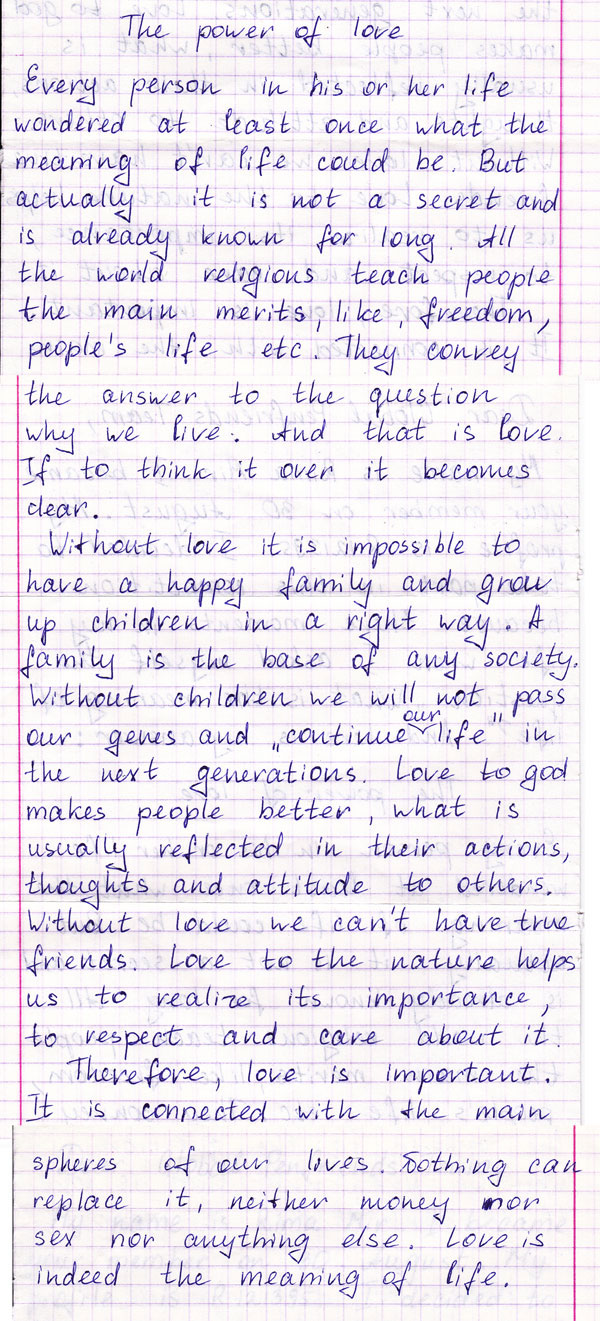 The power of love
Every person in his or her life
wondered at least once what the
meaning of life could be. But
actually it is not a secret and
is already known for long. All
the world religious teach people
the main merits, like, freedom,
people's life etc. They convey
the answer to the question
why we live. And that is love.
If to think it over it becomes
clear.
Without love it is impossible to
have a happy family and grow
up children in a right way. A
family is the base of any society.
Without children we will not pass
our genes and „continue our life" in
the next generations. Love to god
makes people better, what is
usually reflected in their actions,
thoughts and attitude to others.
Without love we can't have true
friends. Love to the nature helps
us to realize its importance,
to respect and care about it.
Therefore, love is important.
It is connected with the main
spheres of our lives. Nothing can
replace it, neither money nor
sex nor anything else. Love is
indeed the meaning of life.